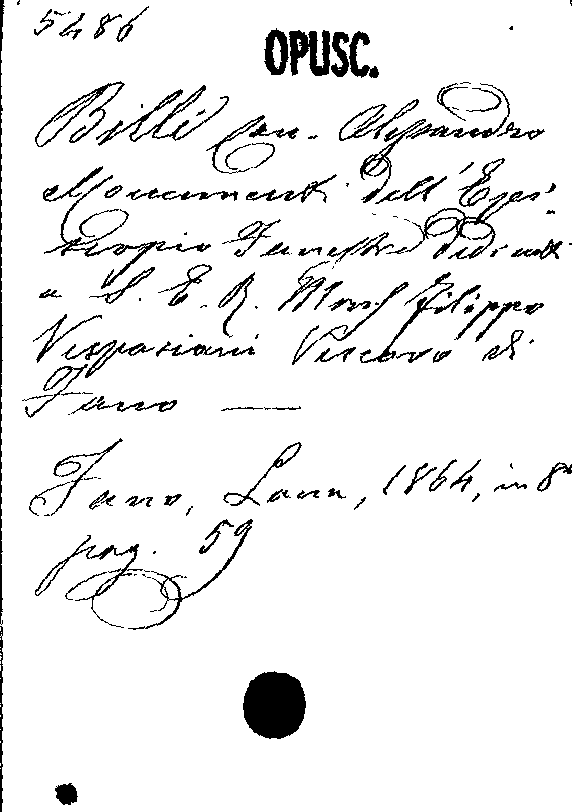 5486
OPUSC.
Billi Can. Alessandro
Monumenti dell'Epi-
scopio Fanestre dedicati
a S. E. R. Mons Filippo
Vespasiani Vescovo di
Fano —
Fano, Lana, 1864, in 8°
pag. 59